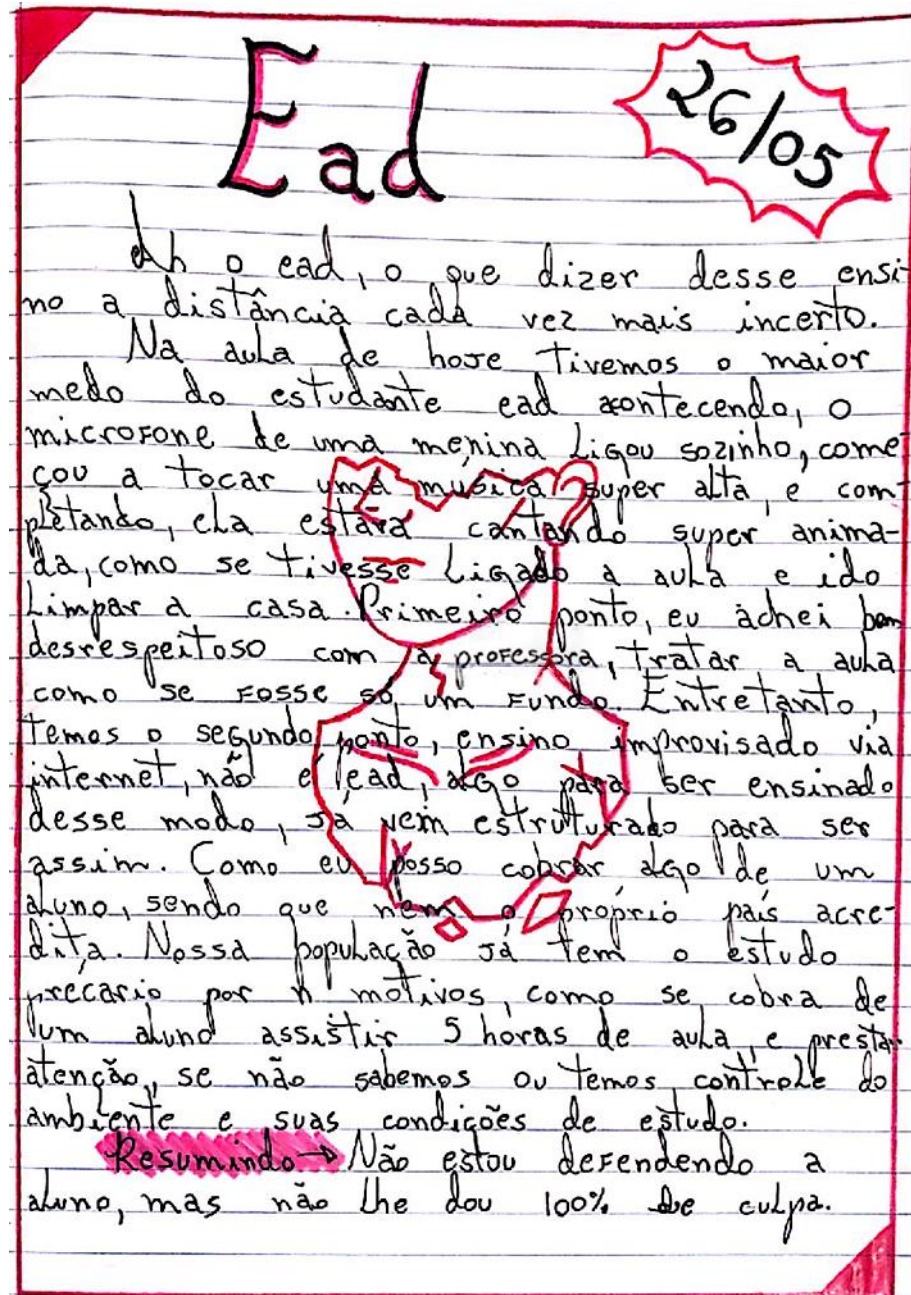 Ead
26/05
Ah o ead, o que dizer desse ensi-
no a distância cada vez mais incerto.
Na aula de hoje tivemos o maior
medo do estudante ead acontecendo, o
microfone de uma menina ligou sozinho, come-
çou a tocar uma música super alta, e com-
pletando, ela estava cantando super anima-
da, como se tivesse ligado a aula e ido
limpar a casa. Primeiro ponto, eu achei bem
desrespeitoso com a professora, tratar a aula
como se fosse só um fundo. Entretanto,
temos o segundo ponto, ensino improvisado via
internet, não é ead, algo para ser ensinado
desse modo, já vem estruturado para ser
assim. Como eu posso cobrar algo de um
aluno, sendo que nem o próprio país acre-
dita. Nossa população já tem o estudo
precario por n motivos, como se cobra de
um aluno assistir 5 horas de aula, e prestar
atenção, se não sabemos ou temos controle do
ambiente e suas condições de estudo.
Resumindo → Não estou defendendo a
aluno, mas não lhe dou 100% de culpa.